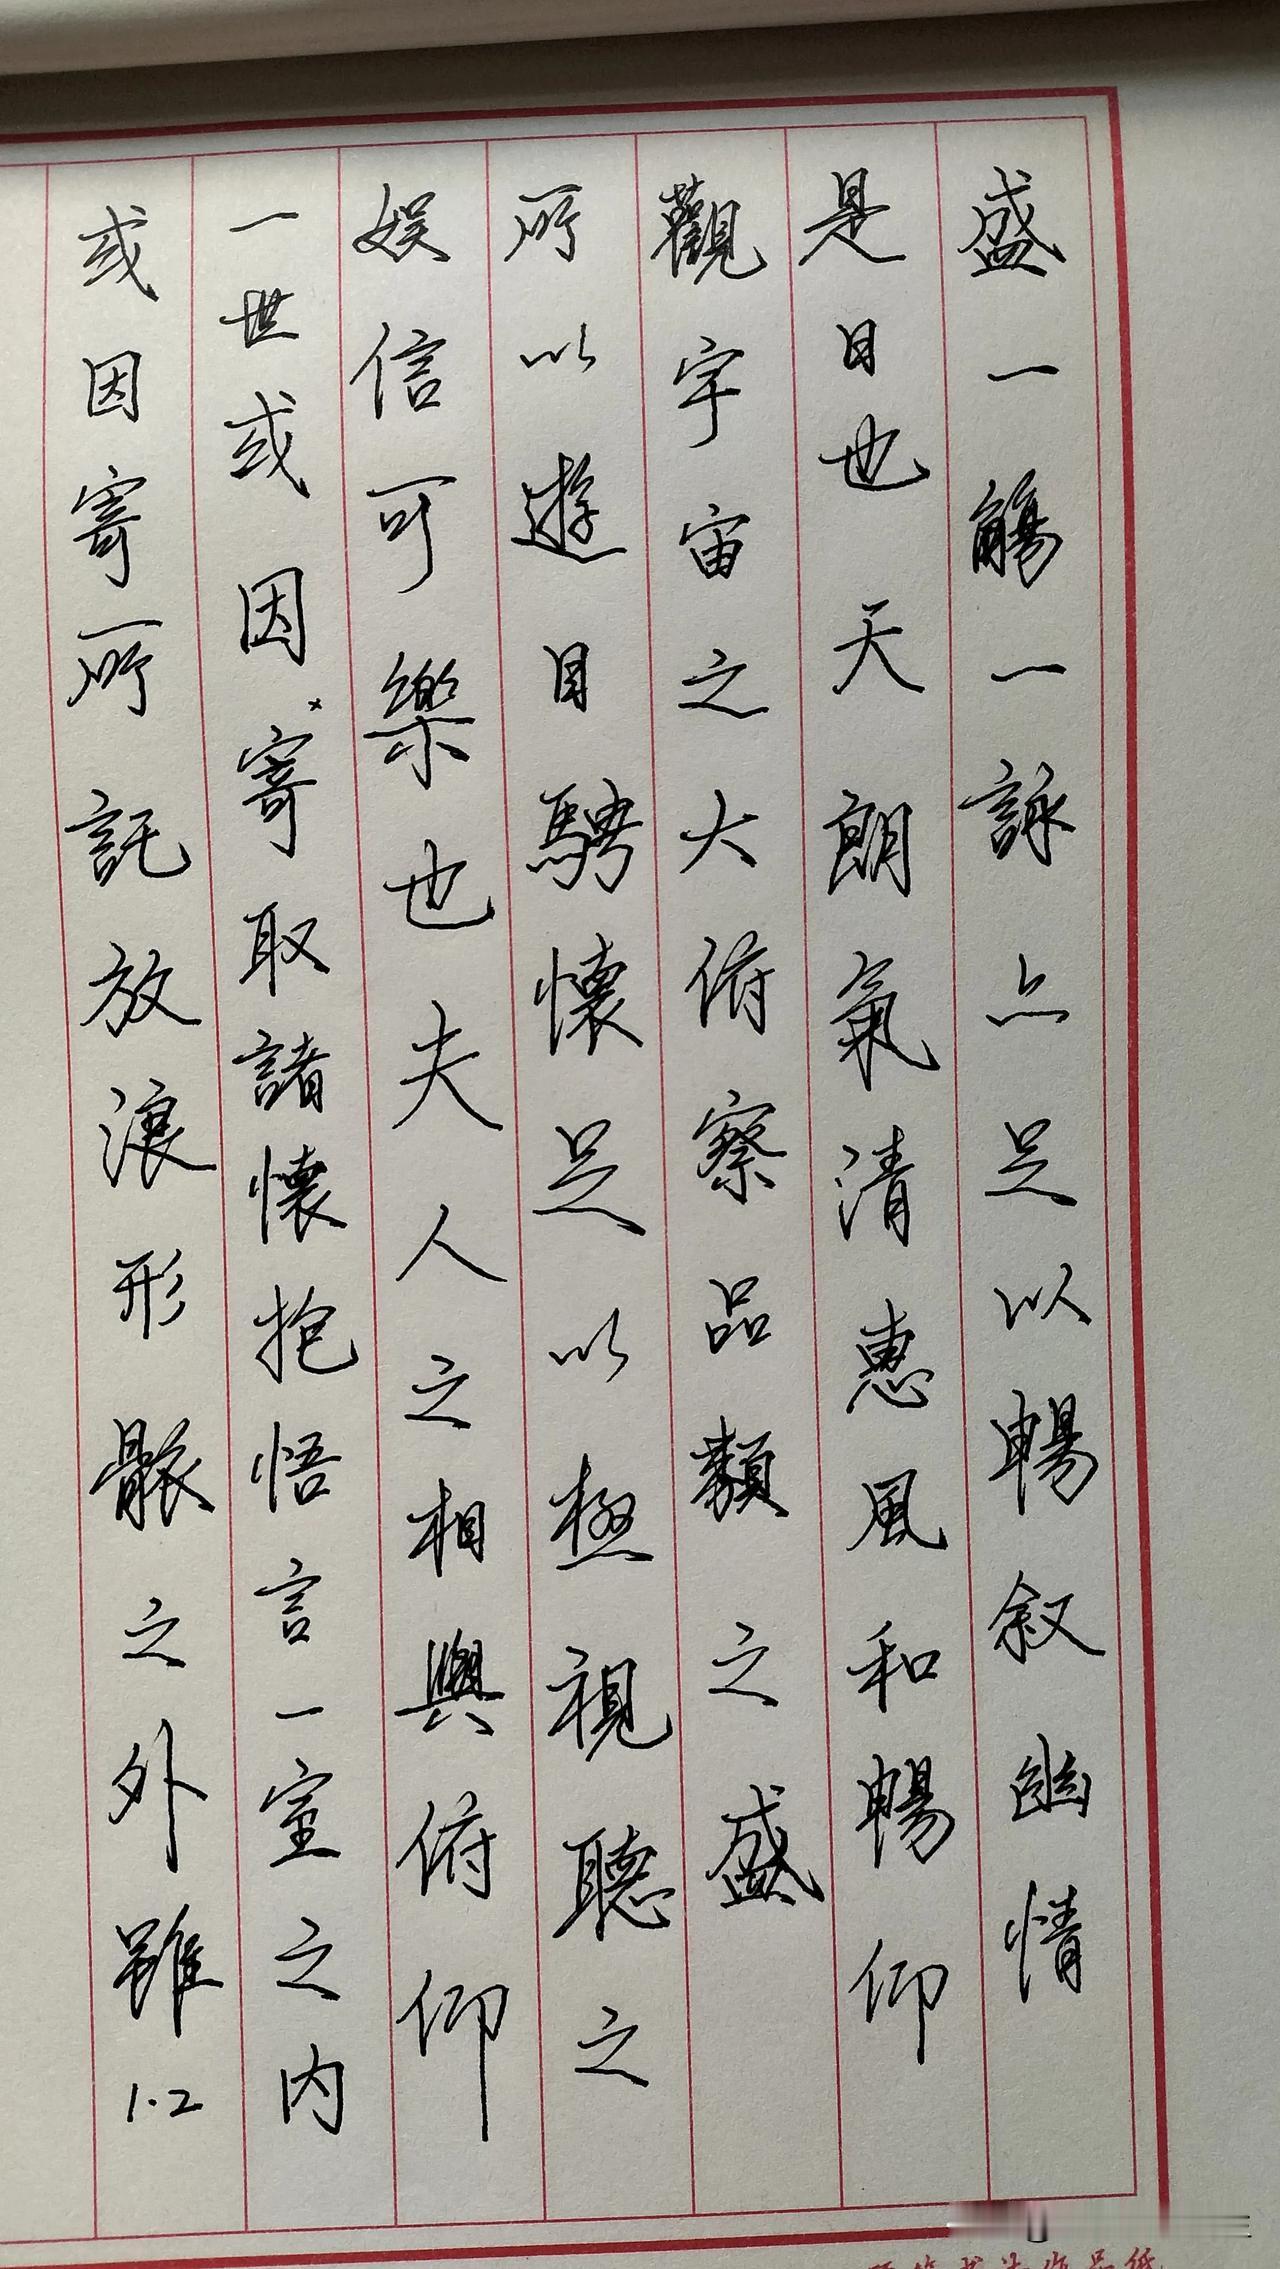 盛一觴一詠亦足以暢叙幽情
是日也天朗氣清惠風和暢仰
觀宇宙之大俯察品類之盛
所以遊目騁懷足以極視聽之
娱信可樂也夫人之相與俯仰
一世或因寄取諸懷抱悟言一室之内
或因寄所託放浪形骸之外雖
1.2